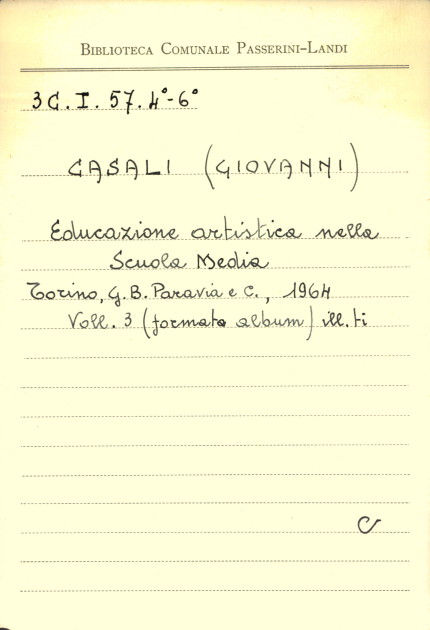 BIBLIOTECA COMUNALE PASSERINI-LANDI
3C.I.57.4°-6°
CASALI (GIOVANNI)
Educazione artistica nella
Scuola Media
Torino, G.B. Paravia e C., 1964
Voll. 3 (formato album) ill.ti
C